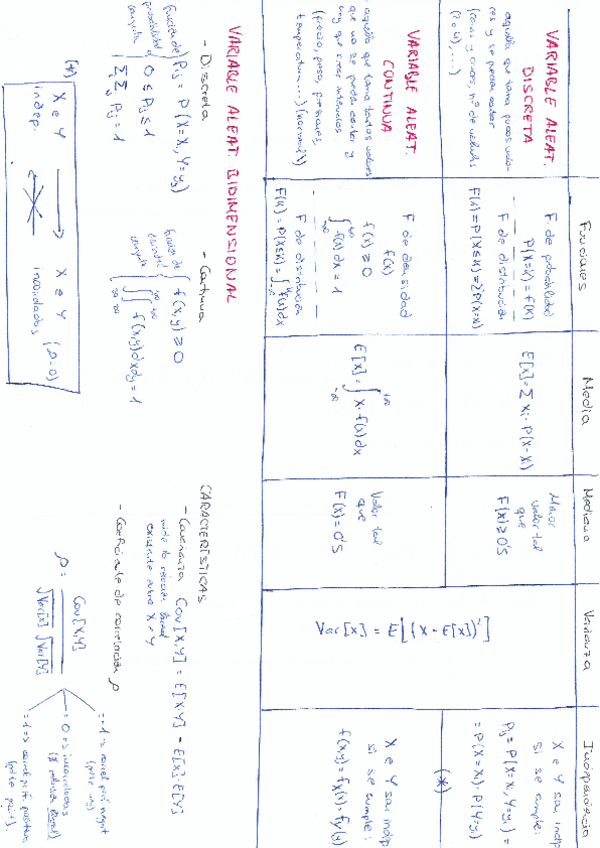 Funciones
Media
Mediana
Varianza
Independencia
VARIABLE ALEAT.
DISCRETA
aquella que toma pocos valo-
res y se pueden contar
(caras y cruces, nº de
F. de probabilidad
P(X=K) = f(K)
F de distribución
F(K) = P(X≤K) = ΣP(X=K)
E[X] = Σ xi · P(X=xi)
valor tal
que
F(X) ≥ 0'5
Var[X] = E[(X - E[X])²]
X e Y son indep
si se cumple:
Pij = P(X=xi, Y=yj) =
= P(X=xi) · P(Y=yj)
(*)
VARIABLE ALEAT.
CONTINUA
aquella que toma tantos valores
que no se pueden contar y
hay que crear intervalos
(precio, peso, presiones,
temperatura, ...) (normal)
F de densidad
f(x)
f(x) ≥ 0
∫ f(x) dx = 1
F de distribución
F(K) = P(X≤K) = ∫ f(x) dx
E[X] = ∫ x · f(x) dx
Valor tal
que
F(X) = 0'5
X e Y son indep
si se cumple:
f(x,y) = fx(x) · fy(y)
VARIABLE ALEAT. BIDIMENSIONAL
- Discreta
función de
probabilidad
conjunta
Pij = P(X=xi, Y=yj)
0 ≤ Pij ≤ 1
Σ Σ Pij = 1
i j
- Continua
función de
densidad
conjunta
f(x,y) ≥ 0
∫∫ f(x,y) dx dy = 1
(*)
X e Y → X e Y (ρ=0)
indep. incorreladas
CARACTERÍSTICAS
- Covarianza Cov[X,Y] = E[X·Y] - E[X]·E[Y]
mide la relación lineal
existente entre X e Y
- Coeficiente de correlación ρ
ρ = Cov[X,Y]
√Var[X] √Var[Y]
= -1 ⇒ correl. perf. negat
= 0 ⇒ incorreladas
(∄ relación lineal)
= 1 ⇒ correl. perf. positiva